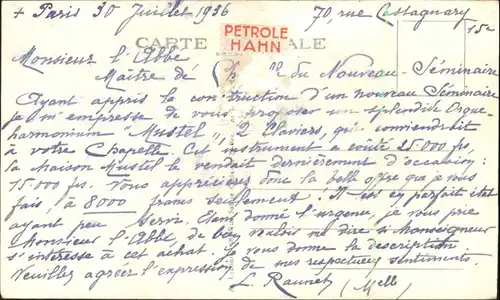 + Paris 30 Juillet 1936 70, rue Castagnary
15e
PETROLE
HAHN
CARTE ALE
Monsieur l'Abbé
Maître de du Nouveau-Séminaire
Ayant appris la construction d'un nouveau Séminaire
je m'empresse de vous proposer un splendide Orgue-
harmonium "Mustel", 2 Claviers, qui conviendrait
à votre Chapelle. Cet instrument a coûté 25.000 frs,
la maison Mustel le vendait dernièrement d'occasion:
15.000 frs. Vous apprécierez donc la belle offre que je vous
fais, à 8000 francs seulement. Il est en parfait état
ayant peu servi. Etant donné l'urgence, je vous prie
Monsieur l'Abbé, de bien vouloir me dire si Monseigneur
s'intéresse à cet achat je vous donne la description.
Veuillez agréer l'expression de mes respectueux sentiments.
L. Raunet (Melle)